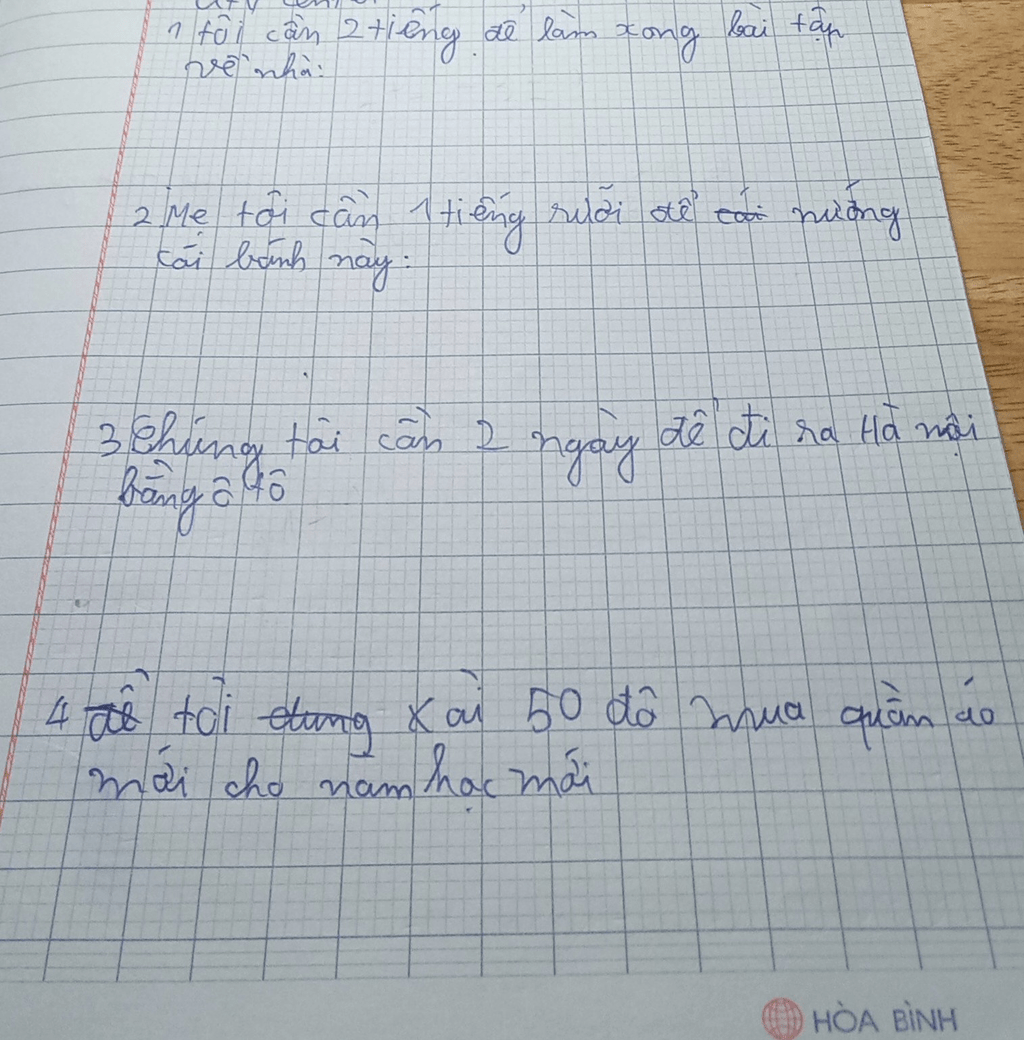 1 tôi cần 2 tiếng để làm xong bài tập
về nhà:
2 Mẹ tôi cần 1 tiếng rưỡi để cái nướng
cái bánh này:
3 Chúng tôi cần 2 ngày để đi ra Hà nội
bằng ô tô
4 để tôi dung xài 50 đô mua quần áo
mới cho năm học mới
HÒA BÌNH